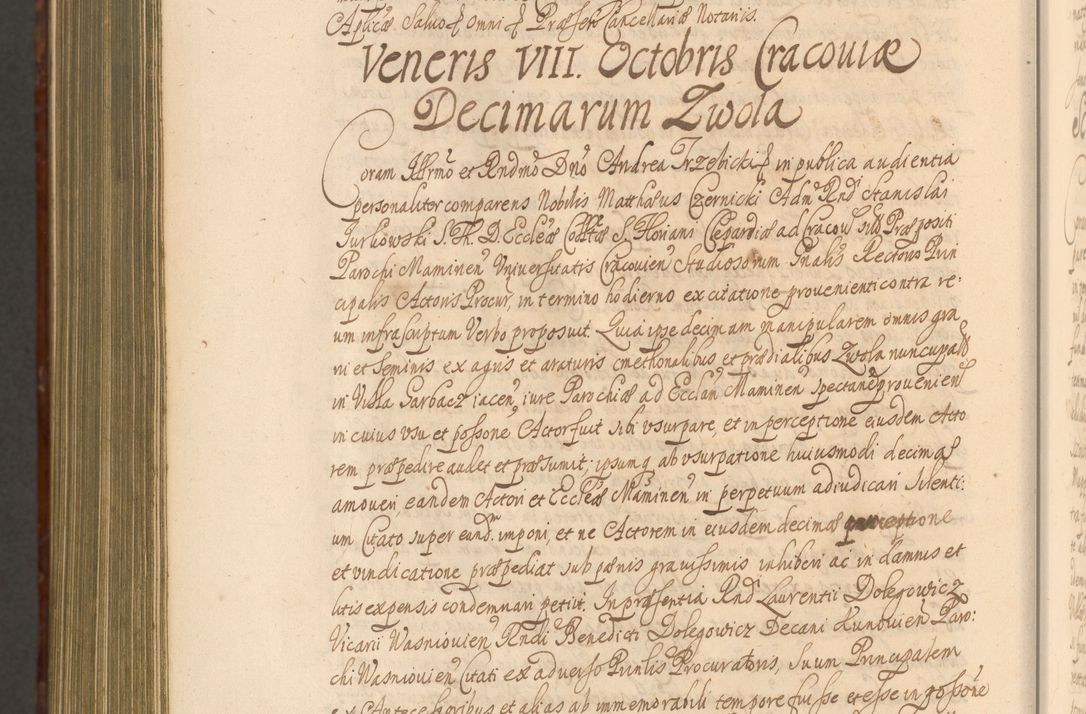 Apticæ. Salvo ꝑ omni ꝑ Præsen. Cancellariæ Notariis.
Veneris VIII. Octobris Cracoviæ
Decimarum Zwola
Coram Illrmo et Rndmo Dno Andrea Trzebicki ꝑ in publica audientia
personaliter comparens Nobilis Matthæus Czernicki Adm Rndi Stanislai
Jurkowski S. Th. D. Eccleæ Colltæ S. Floriani Clepardiæ ad Cracou sitæ Præpositi
Parochi Maminen Universitatis Cracovien Studiosorum Gnalis Rectoris Prin
cipalis Actoris Procur, in termino hodierno ex citatione provenienti contra re:
um infrascriptum Verbo proposuit. Quia ipse decimam manipularem omnis gra
ni et seminis ex agris et araturis cmethonalibus et prædialibus Zwola nuncupatis
in Villa Garbacz iacen, iure Parochiæ ad Ecclam Maminen spectan provenien
in cuius usu et possone Actor fuit sibi usurpare, et in perceptione eiusdem Acto
rem præpedire audet et præsumit; ipsumq ab usurpatione huiusmodi decimæ
amoveri, eandem Actori et Eccleæ Maminen in perpetuum adiudicari silenti:
um Citato super eandm imponi, et ne Actorem in eiusdem decimæ perceptione
et vindicatione præpediat sub pænis gravissimis inhiberi ac in damnis et
litis expensis condemnari petiit. In præsentia Rndi Laurentii Dolegowicz
Vicarii Wasniovien Rndi Benedicti Dolegowicz Decani Kunovien Paro:
chi Wasniovien Citati ex adverso Prinlis Procuratoris, suum Principalem
ex Antecessoribus et alias ab immemorabili tempore fuisse et esse in possone